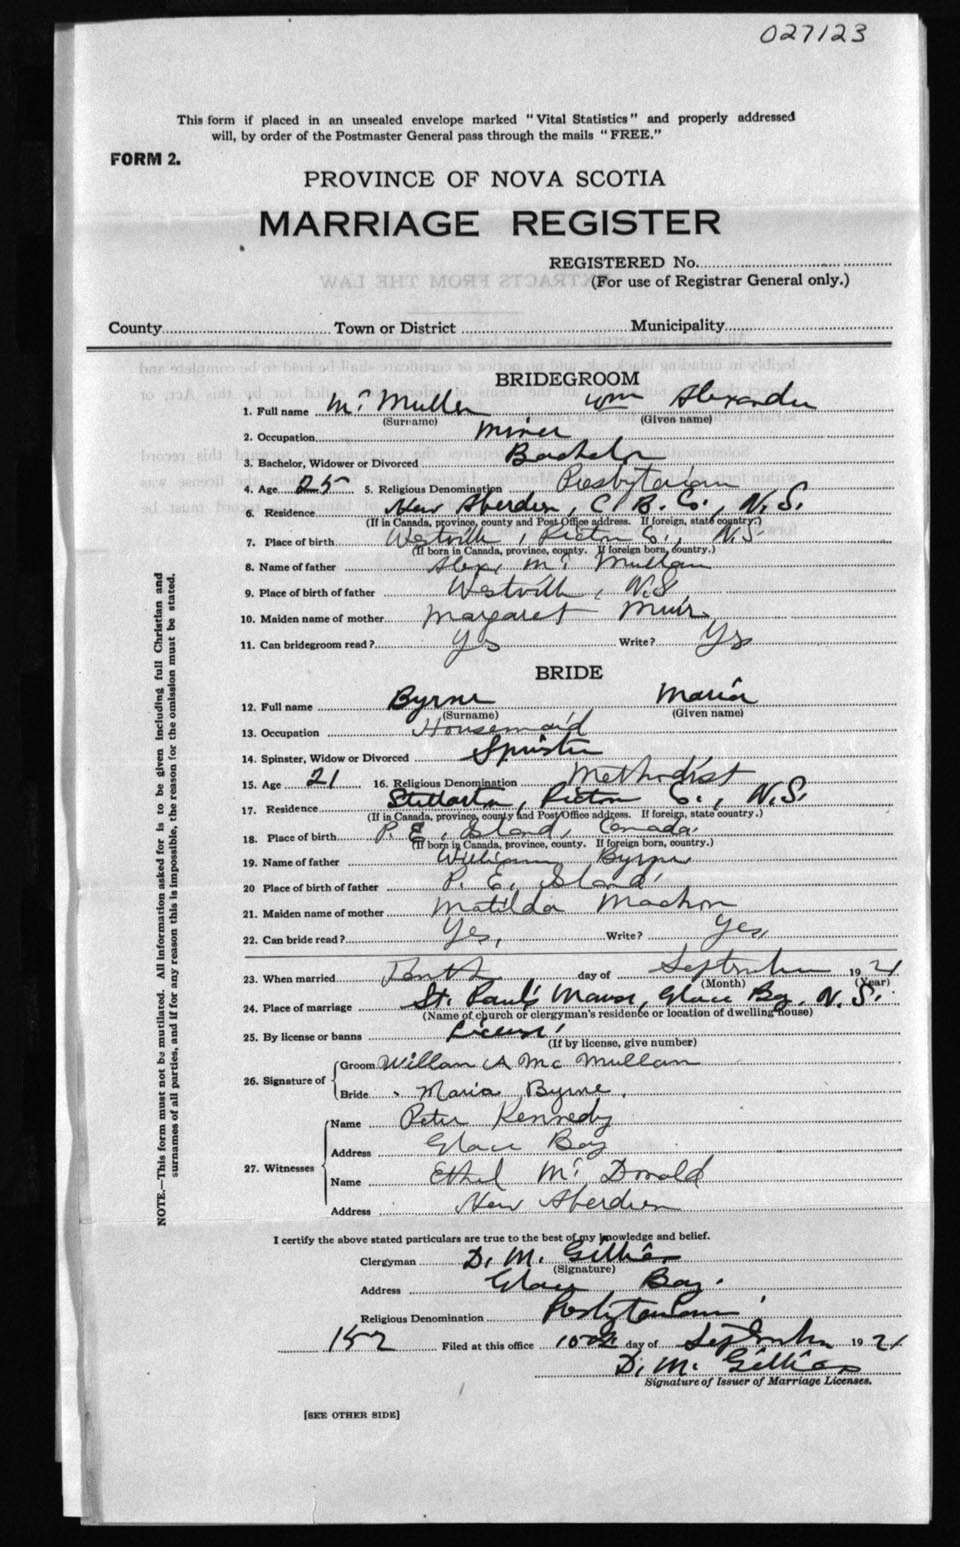 027123
This form if placed in an unsealed envelope marked "Vital Statistics" and properly addressed
will, by order of the Postmaster General pass through the mails "FREE."
FORM 2.
PROVINCE OF NOVA SCOTIA
MARRIAGE REGISTER
REGISTERED No.
(For use of Registrar General only.)
EXTRACTS FROM THE LAW
County Town or District Municipality
BRIDEGROOM
1. Full name Mc Mullen Wm Alexander
(Surname) (Given name)
2. Occupation Miner
3. Bachelor, Widower or Divorced Bachelor
4. Age 25 5. Religious Denomination Presbyterian
6. Residence New Aberdeen, C. B. Co., N.S.
(If in Canada, province, county and Post Office address. If foreign, state country.)
7. Place of birth Westville, Pictou Co., N.S.
(If born in Canada, province, county. If foreign born, country.)
8. Name of father Alex. Mc Mullan
9. Place of birth of father Westville, N.S.
10. Maiden name of mother Margaret Muir
11. Can bridegroom read? Yes Write? Yes
BRIDE
12. Full name Byrne Maria
(Surname) (Given name)
13. Occupation Housemaid
14. Spinster, Widow or Divorced Spinster
15. Age 21 16. Religious Denomination Methodist
17. Residence Stellarton, Pictou Co., N.S.
(If in Canada, province, county and Post Office address. If foreign, state country.)
18. Place of birth P. E. Island, Canada.
(If born in Canada, province, county. If foreign born, country.)
19. Name of father William Byrne
20 Place of birth of father P. E. Island.
21. Maiden name of mother Matilda Machon
22. Can bride read? Yes, Write? Yes,
23. When married Tenth day of September 1921
(Month) (Year)
24. Place of marriage St. Paul's Manse, Glace Bay, N.S.
(Name of church or clergyman's residence or location of dwelling house)
25. By license or banns License
(If by license, give number)
26. Signature of Groom William A Mc Mullan
Bride Maria Byrne.
27. Witnesses Name Peter Kennedy
Address Glace Bay
Name Ethel Mc Donald
Address New Aberdeen
I certify the above stated particulars are true to the best of my knowledge and belief.
Clergyman D. M. Gillies
(Signature)
Address Glace Bay.
Religious Denomination Presbyterian
152 Filed at this office 10th day of September 1921
D. M. Gillies
Signature of Issuer of Marriage Licenses.
[SEE OTHER SIDE]
NOTE.—This form must not be mutilated. All information asked for is to be given including full Christian and
surnames of all parties, and if for any reason this is impossible, the reason for the omission must be stated.